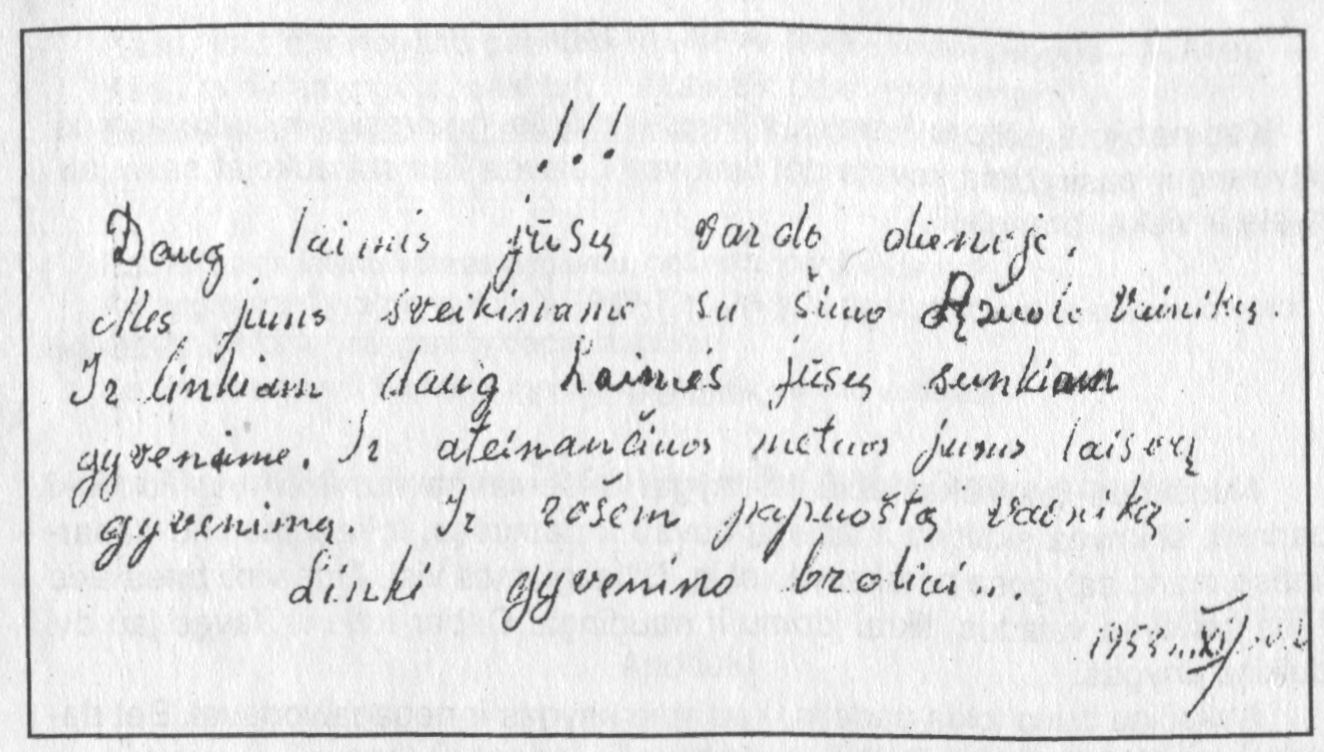 !!!
Daug laimis jūsų vardo dieneje.
Mes jums sveikiname su šiuo Ąžuolo Vainikų.
Ir linkiam daug Laimės jūsų sunkiam
gyvenime. Ir ateinančiuos metuos jums laisvų
gyvenimą Ir rošem papuoštą vainiką.
Linki gyvenino broliai...
1953